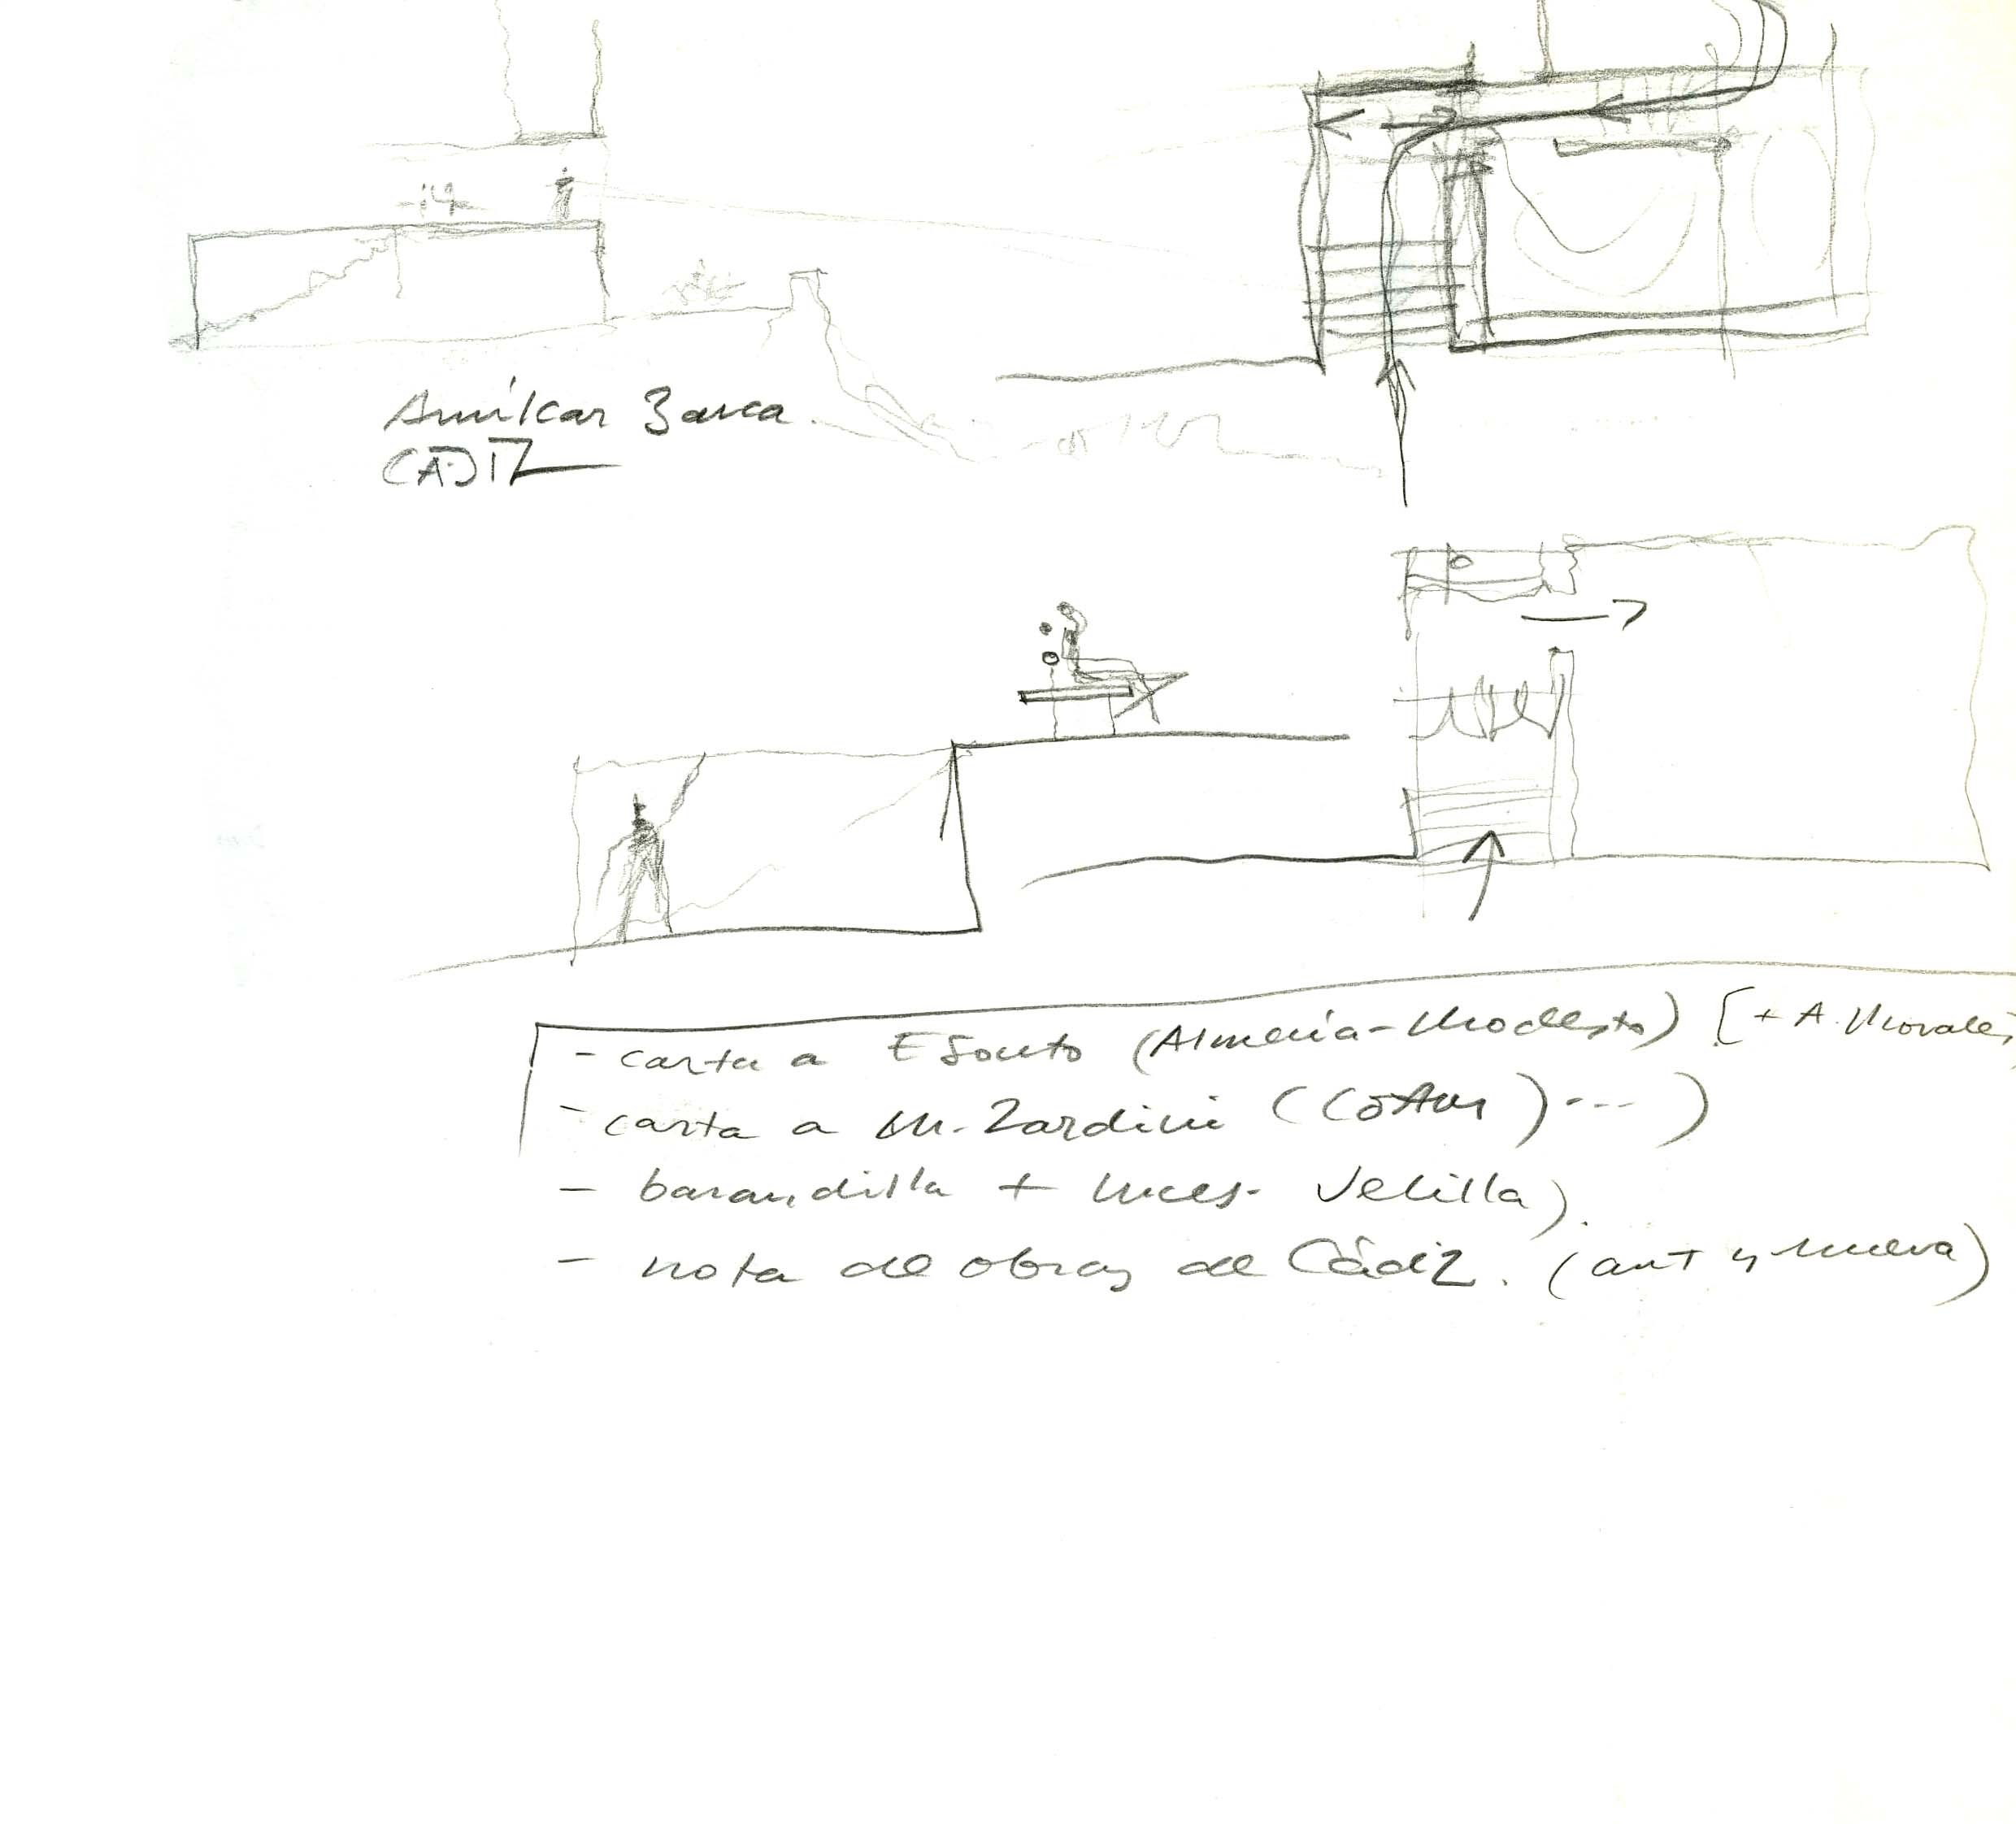 Amílcar Barca.
CADIZ
- carta a E Souto (Almería-Modesto) [+ A. Morales
- carta a M. Zardini ( ) --- )
- barandilla + luces- Velilla)
- nota de obras de Cádiz. (ant y nueva)